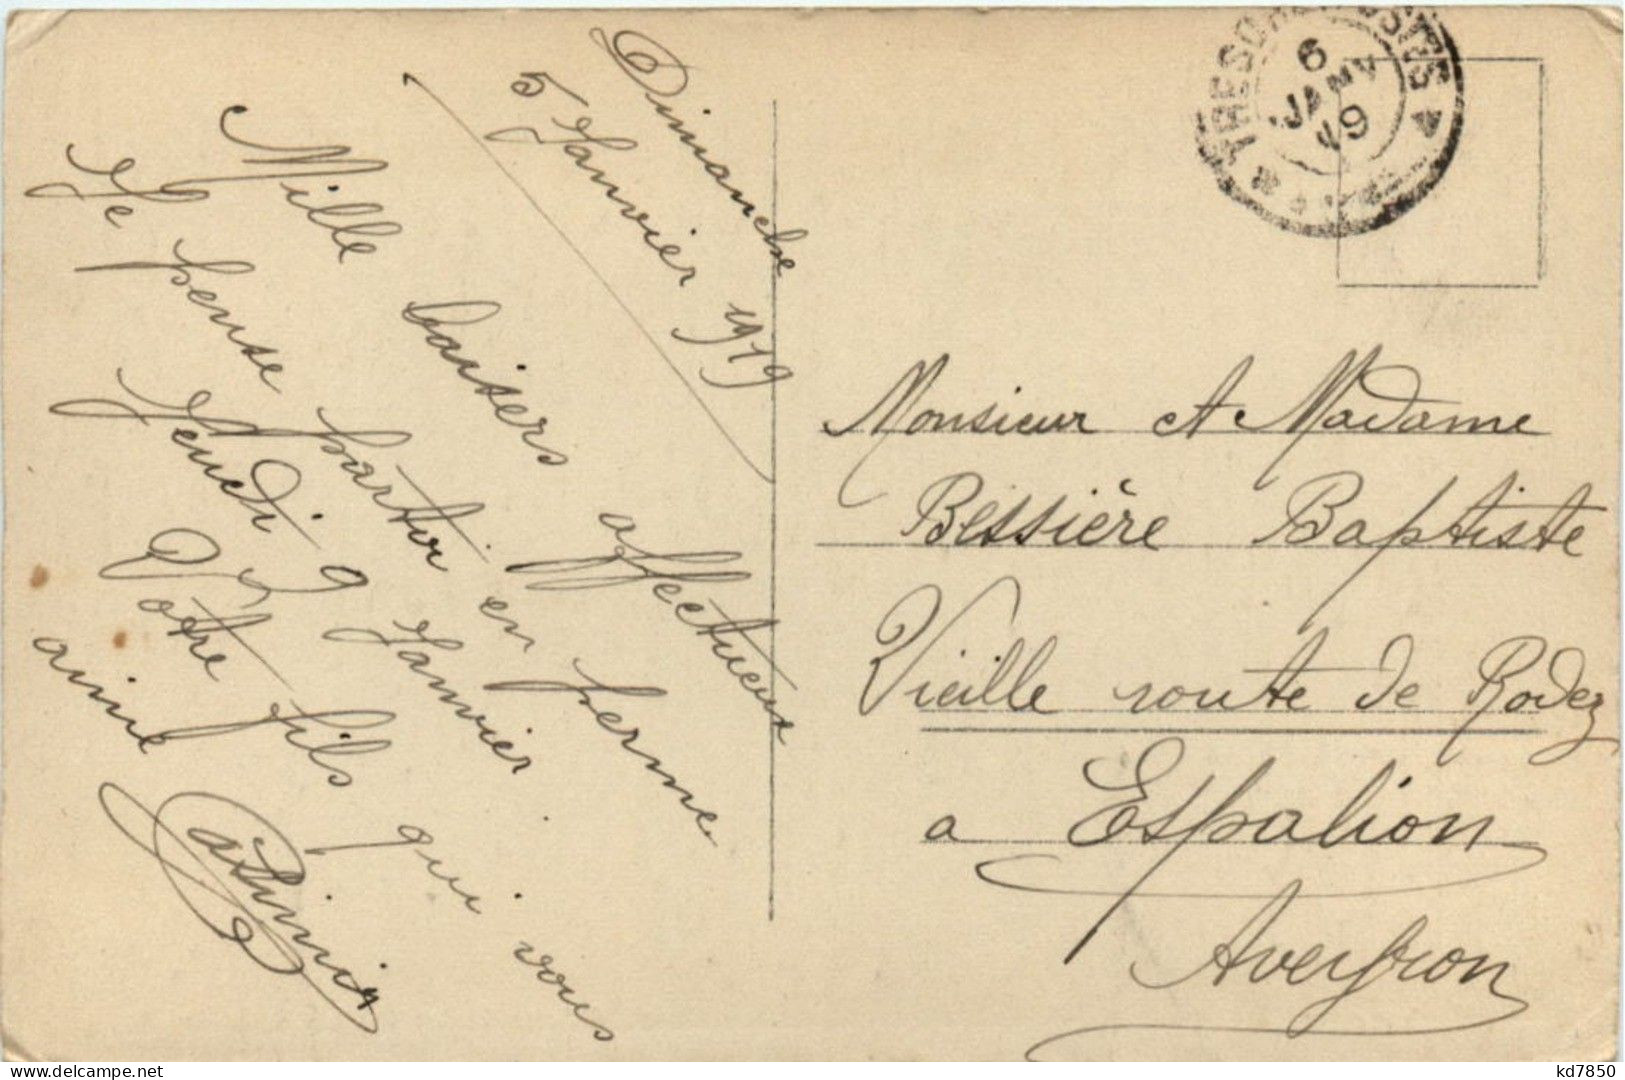 Dimanche
5 Janvier 1919
Mille baisers affectueux
Je pense partir en perme
Jeudi 9 Janvier.
Votre fils qui vous
aime
TRESOR ET POSTES
6
JANV
19
Monsieur et Madame
Bessière Baptiste
Vieille route de Rodez
a Espalion
Aveyron
kd7850